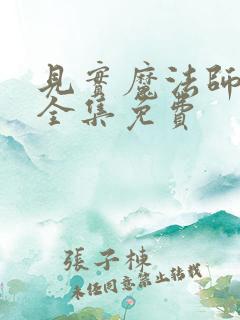 見實魔法師
全集免費
張子棟
未任同意禁止轉載